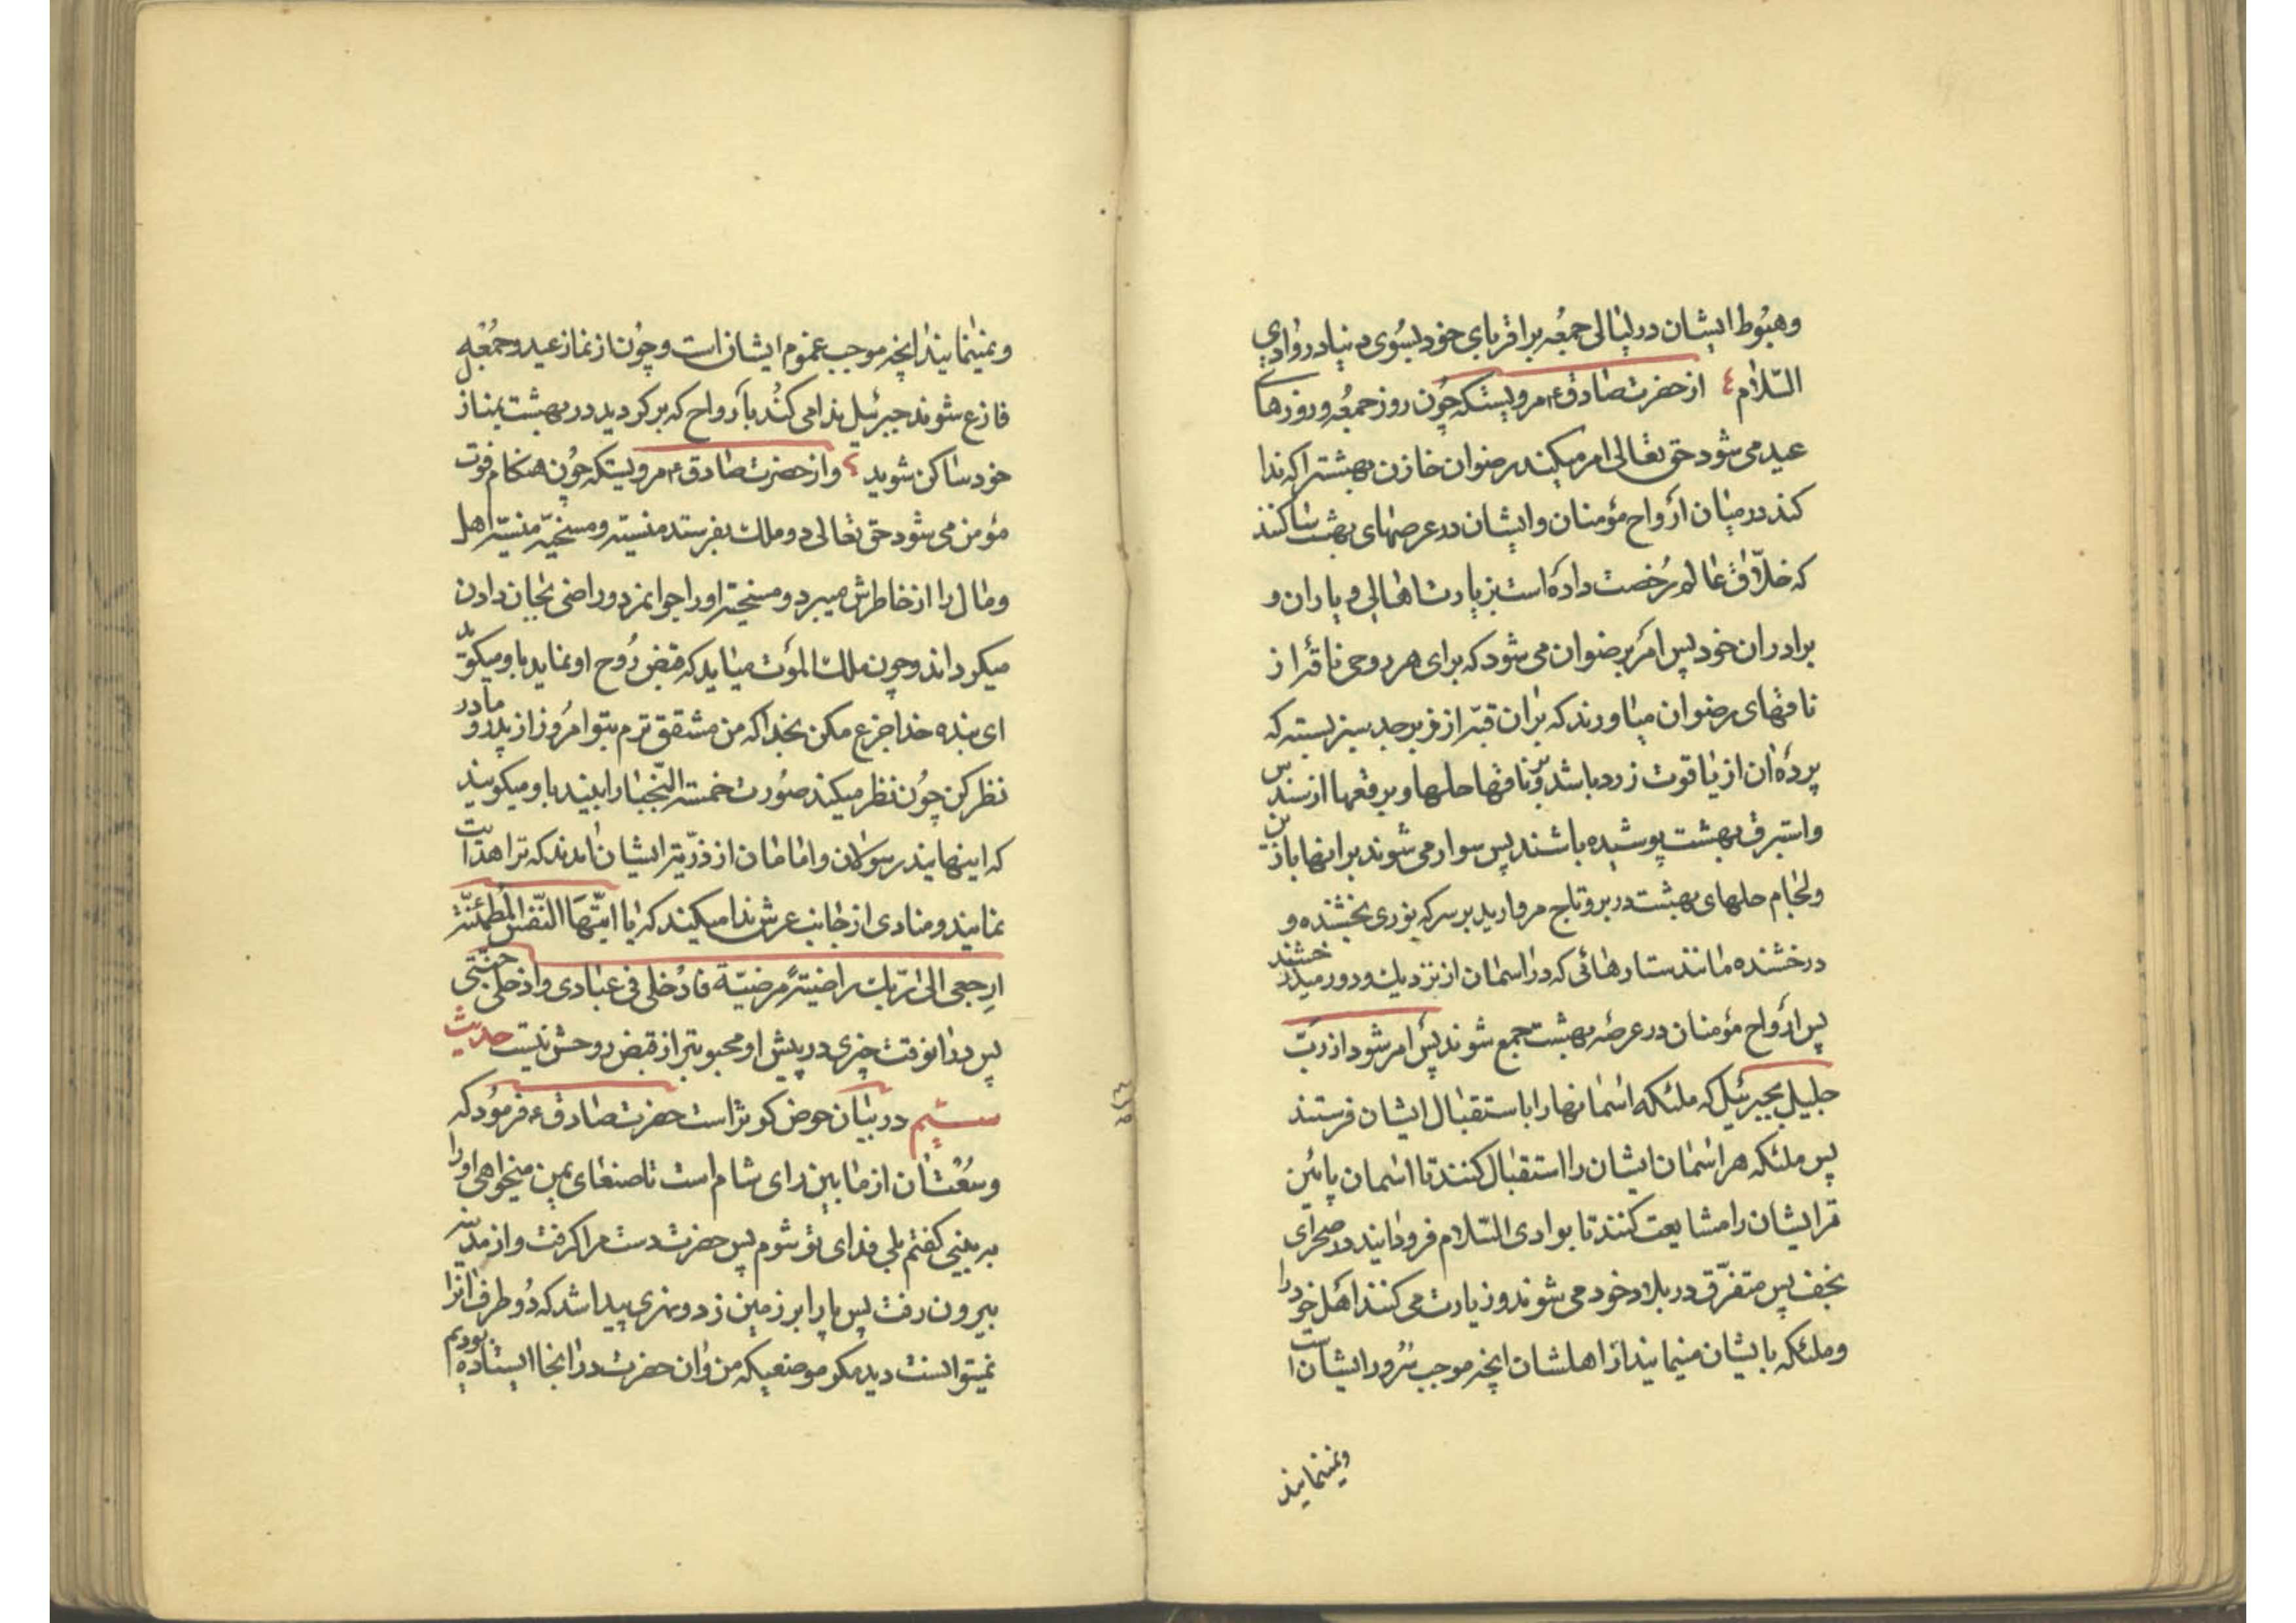 وهبُوط ایشان در لیالی جمعُه بر اقربای خود بسُوی دنیا در وٰادی
السّلٰام ٤ از حضرت صٰادق ع مرویستکه چُون روز جمعُه و روزهای
عید می شود حق تعٰالی امر میکند رضوان خازن بهشترا که ندا
کند در میٰان ارٔواح مؤمنان وایشان در عرصهٰای بهشت ساکنند
که خلّاق عٰالم رُخصت دادهٔ است بزیارت اهالی و یاران و
برادران خود پس امرُ بر ضوان می شود که برای هر روحی ناقهٔ از
ناقهٰای رضوان میٰاورند که برٰان قبّه از زبرجد سبز بسته که
پردهٔ ان از یٰاقوت زرد باشد و بر ناقهٰا حلهٰا و برقعهٰا از سندس
واستبرق بهشت پوشیده باشند پس سوار می شوند بر اینها با زین
ولجٰام حلهای بهشت در بر و تاج مروارید بر سر که نوری بخشنده و
درخشنده مٰانند ستارهائی که در اسمٰان از نزدیك و دور میدرخشند
پس ارٔواح مؤمنان در عرصٔه بهشت جمع شوند پس امر شود از ربّ
جلیل بجبرئیل که ملئکه اسٰمانهٰا را باستقبال ایشان فرستند
پس ملئکه هر اسٰمان ایشان را استقبٰال کنند تا اسٰمان پائین
تر ایشان را مشایعت کنند تا بوادی السّلٰام فرودٰایند در صحرٰای
نجف پس متفرّق در بلٰاد خود می شوند و زیارت می کنند اهٔل خود را
وملئکه بایشان مینمایند از اهلشان انچه موجب سُرور ایشان است
ونمینمایند
ونمینمٰایند انچه موجب غموم ایشان است و چُون از نماز عید و جمُعه
فارغ شوند جبرئیل ندا می کُند بارٔواح که بر کردید در بهشت بمناز
خود ساکن شوید ٤ واز حضرت صٰادق ع مرویستکه چُون هنکام فوت
مؤمن می شود حق تعٰالی دو ملك بفرستد منسیّه و مسخیّه منسیّه اهل
ومٰال را از خاطرش میبرد و مسخیّه او را جوانمرد و راضی بجٰان دادن
میکرداند و چون ملك المؤت میٰاید که قبض رُوح او نماید باو میکوید
ای بنده خدا جزع مکن بخدا که من مشفق ترم بتو امرُوز از پدر و مادر
نظر کن چُون نظر میکند صوُرت خمسه النّجبٰا را ببیند باو میکویند
که اینهایند رسولان و امٰامٰان از ذرّیّه ایشان اندند که ترا هدایت
نمایند و منادی از جٰانب عرش ندا میکند که یٰا ایّتُهَا النّفسُ المُطمئنّة
ارِجعی الی ربّك راضیةً مرضیّة فادُخلی فی عبٰادی وادخلی جنّتی
پس در انوقت چیزی در پیش او محبوبتر از قبض روحش نیست حدیث
سیّم در بیٰان حوض کوثر است حضرت صٰادق ع فرموُد که
وسعُت ان از مٰا بین رای شام است تا صنعٰای یمن میخواهی او را
ببینی کفتم بلی فدٰای تو شوم پس حضرت دست مرا کرفت و از مدینه
بیرون رفت پس پا را بر زمین زد و نهری پیدا شد که دُو طرف انرا
نمیتوانست دید مکر موضعیکه من و ان حضرت در انجا ایستاده بودیم